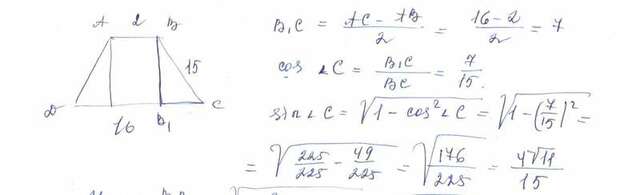 A 2 B
15
D 16 B₁ C
B₁C = (AC − AB)/2 = (16 − 2)/2 = 7
cos ∠C = B₁C/BC = 7/15.
sin ∠C = √(1 − cos² ∠C) = √(1 − (7/15)²) =
= √(225/225 − 49/225) = √(176/225) = 4√11/15